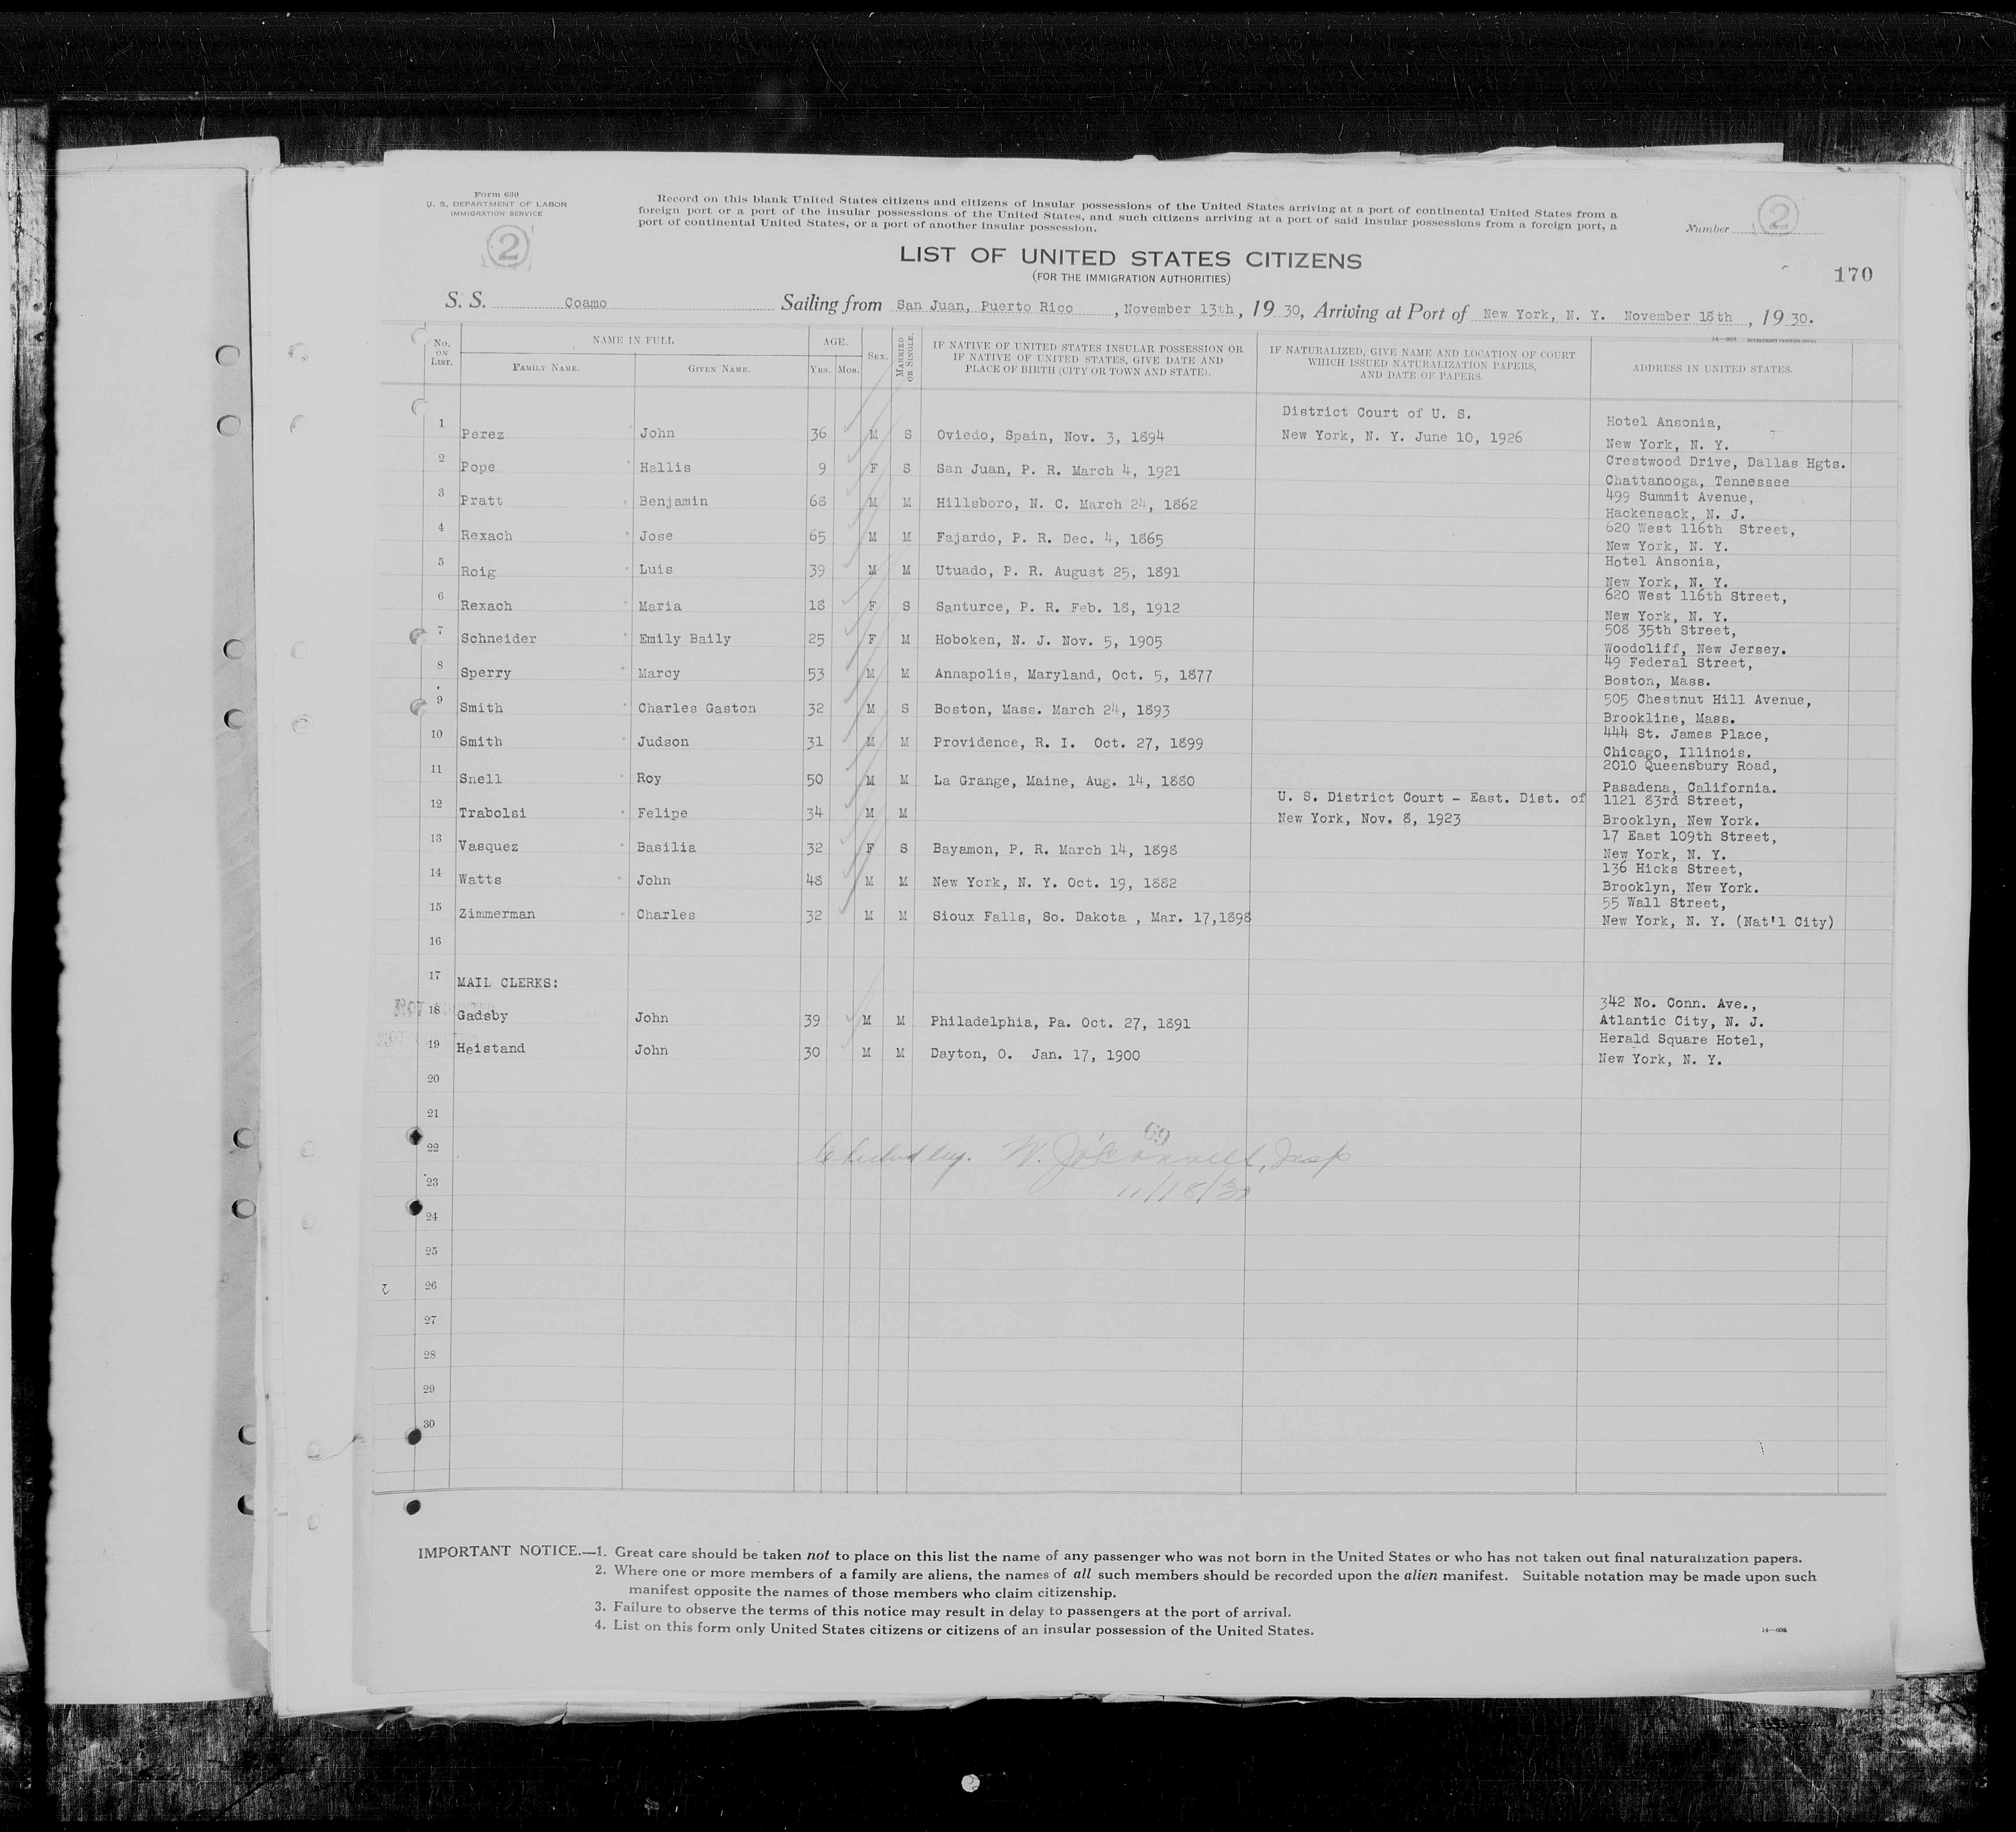 Form 630
U. S. DEPARTMENT OF LABOR
IMMIGRATION SERVICE
2
Record on this blank United States citizens and citizens of insular possessions of the United States arriving at a port of continental United States from a
foreign port or a port of the insular possessions of the United States, and such citizens arriving at a port of said insular possessions from a foreign port, a
port of continental United States, or a port of another insular possession.
Number 2
LIST OF UNITED STATES CITIZENS
(FOR THE IMMIGRATION AUTHORITIES)
170
S. S. Coamo Sailing from San Juan, Puerto Rico, November 13th, 19 30, Arriving at Port of New York, N. Y. November 18th, 19 30.
No. ON LIST. NAME IN FULL FAMILY NAME. GIVEN NAME. AGE. YRS. MOS. SEX. MARRIED OR SINGLE. IF NATIVE OF UNITED STATES INSULAR POSSESSION OR IF NATIVE OF UNITED STATES, GIVE DATE AND PLACE OF BIRTH (CITY OR TOWN AND STATE). IF NATURALIZED, GIVE NAME AND LOCATION OF COURT WHICH ISSUED NATURALIZATION PAPERS, AND DATE OF PAPERS. ADDRESS IN UNITED STATES.
1 Perez John 36 M S Oviedo, Spain, Nov. 3, 1894 District Court of U. S. New York, N. Y. June 10, 1926 Hotel Ansonia, New York, N. Y.
2 Pope Hallis 9 F S San Juan, P. R. March 4, 1921 Crestwood Drive, Dallas Hgts. Chattanooga, Tennessee
3 Pratt Benjamin 68 M M Hillsboro, N. C. March 24, 1862 499 Summit Avenue, Hackensack, N. J.
4 Rexach Jose 65 M M Fajardo, P. R. Dec. 4, 1865 620 West 116th Street, New York, N. Y.
5 Roig Luis 39 M M Utuado, P. R. August 25, 1891 Hotel Ansonia, New York, N. Y.
6 Rexach Maria 18 F S Santurce, P. R. Feb. 18, 1912 620 West 116th Street, New York, N. Y.
7 Schneider Emily Baily 25 F M Hoboken, N. J. Nov. 5, 1905 508 35th Street, Woodcliff, New Jersey.
8 Sperry Marcy 53 M M Annapolis, Maryland, Oct. 5, 1877 49 Federal Street, Boston, Mass.
9 Smith Charles Gaston 32 M S Boston, Mass. March 24, 1893 505 Chestnut Hill Avenue, Brookline, Mass.
10 Smith Judson 31 M M Providence, R. I. Oct. 27, 1899 444 St. James Place, Chicago, Illinois.
11 Snell Roy 50 M M La Grange, Maine, Aug. 14, 1880 2010 Queensbury Road, Pasadena, California.
12 Trabolsi Felipe 34 M M U. S. District Court - East. Dist. of New York, Nov. 8, 1923 1121 83rd Street, Brooklyn, New York.
13 Vasquez Basilia 32 F S Bayamon, P. R. March 14, 1898 17 East 109th Street, New York, N. Y.
14 Watts John 48 M M New York, N. Y. Oct. 19, 1882 136 Hicks Street, Brooklyn, New York.
15 Zimmerman Charles 32 M M Sioux Falls, So. Dakota , Mar. 17,1898 55 Wall Street, New York, N. Y. (Nat'l City)
16
17 MAIL CLERKS:
18 Gadsby John 39 M M Philadelphia, Pa. Oct. 27, 1891 342 No. Conn. Ave., Atlantic City, N. J.
19 Heistand John 30 M M Dayton, O. Jan. 17, 1900 Herald Square Hotel, New York, N. Y.
20
21
22
69
23
11/18/30
24
25
26
27
28
29
30
IMPORTANT NOTICE.—1. Great care should be taken not to place on this list the name of any passenger who was not born in the United States or who has not taken out final naturalization papers.
2. Where one or more members of a family are aliens, the names of all such members should be recorded upon the alien manifest. Suitable notation may be made upon such
manifest opposite the names of those members who claim citizenship.
3. Failure to observe the terms of this notice may result in delay to passengers at the port of arrival.
4. List on this form only United States citizens or citizens of an insular possession of the United States.